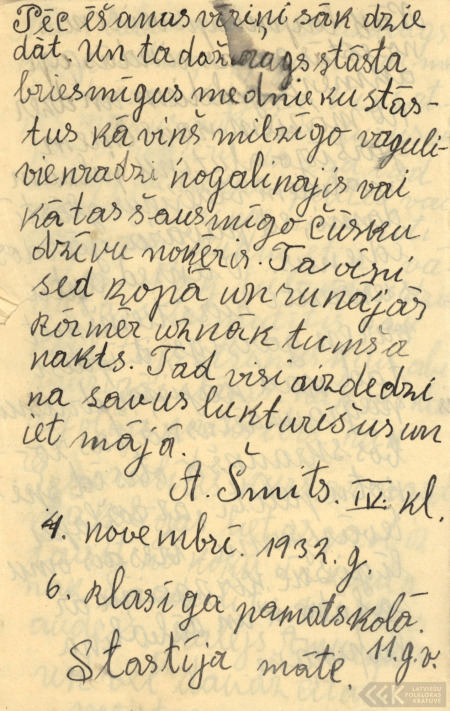 Pēc ēšanas viriņi sāk dzie
dāt. Un ta daž rags stāsta
briesmīgus mednieku stās-
tus kā viņš milzīgo vaguli-
vienradzi nogalinajis vai
kā tas šausmīgo čūsku
dzīvu noķēris. Ta visi
sed kopā un runājās
kōrmēr uznāk tumša
nakts. Tad visi aizdedzi
na savus lukturīšus un
iet mājā.
A. Šmits. IV. kl.
4. novembrī. 1932. g.
6. klasīga pamatskolā.
Stastīja māte. 11.g.v.
LATVIEŠU
FOLKLORAS
KRĀTUVE